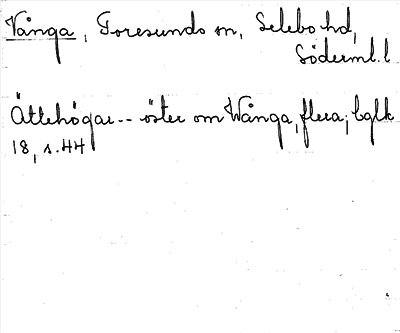 Vånga, Toresunds sn, Selebo hd,
Söderml. l
Ättehögar -- öster om Wånga, flera; bglk
18, s. 44